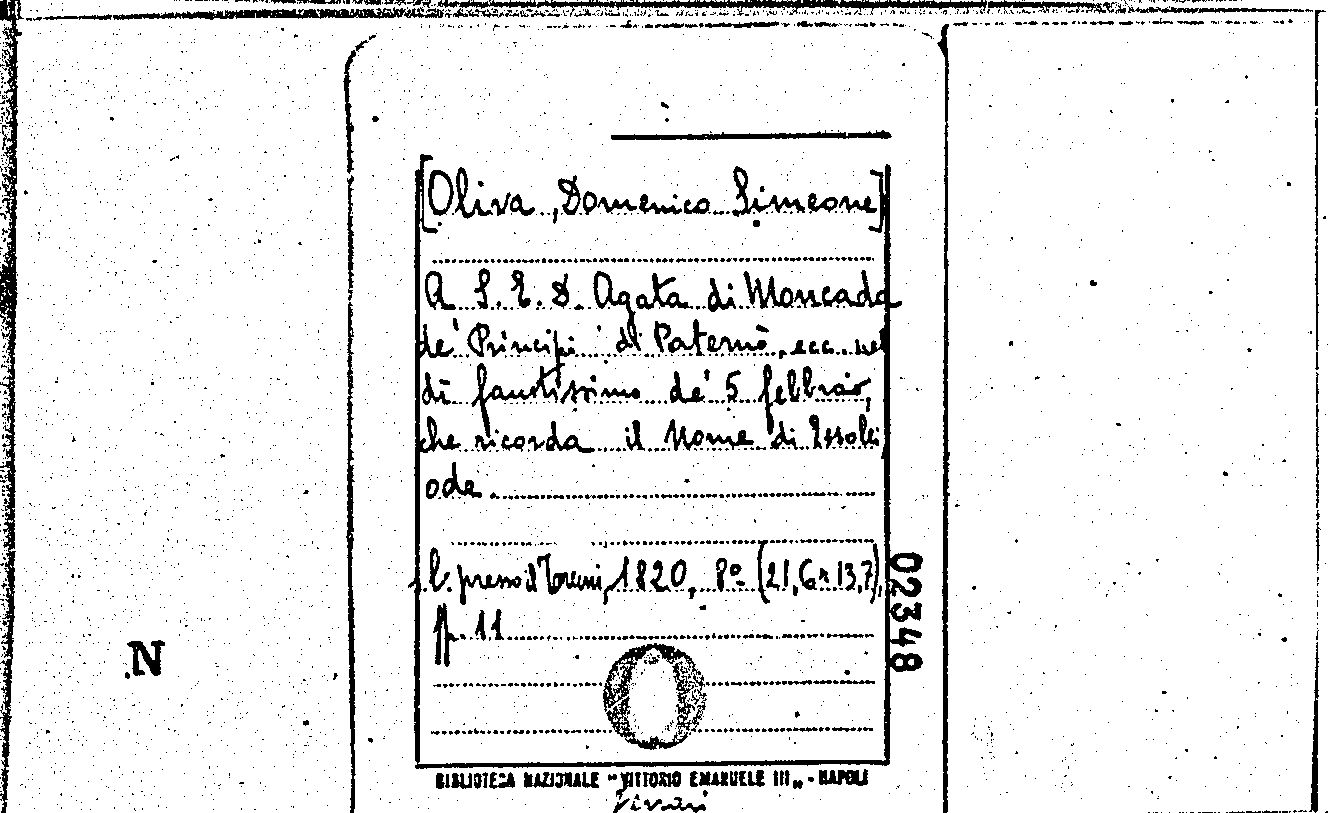 [Oliva, Domenico Simeone]
A S. E. D. Agata di Moncada
de' Principi di Paternò, ecc. nel
dì faustissimo de' 5 febbraio,
che ricorda il Nome di
ode.
s.l. presso il 1820, 8º (21,6x13,7),
pp. 11
02348
N
BIBLIOTECA NAZIONALE "VITTORIO EMANUELE III„ - NAPOLI